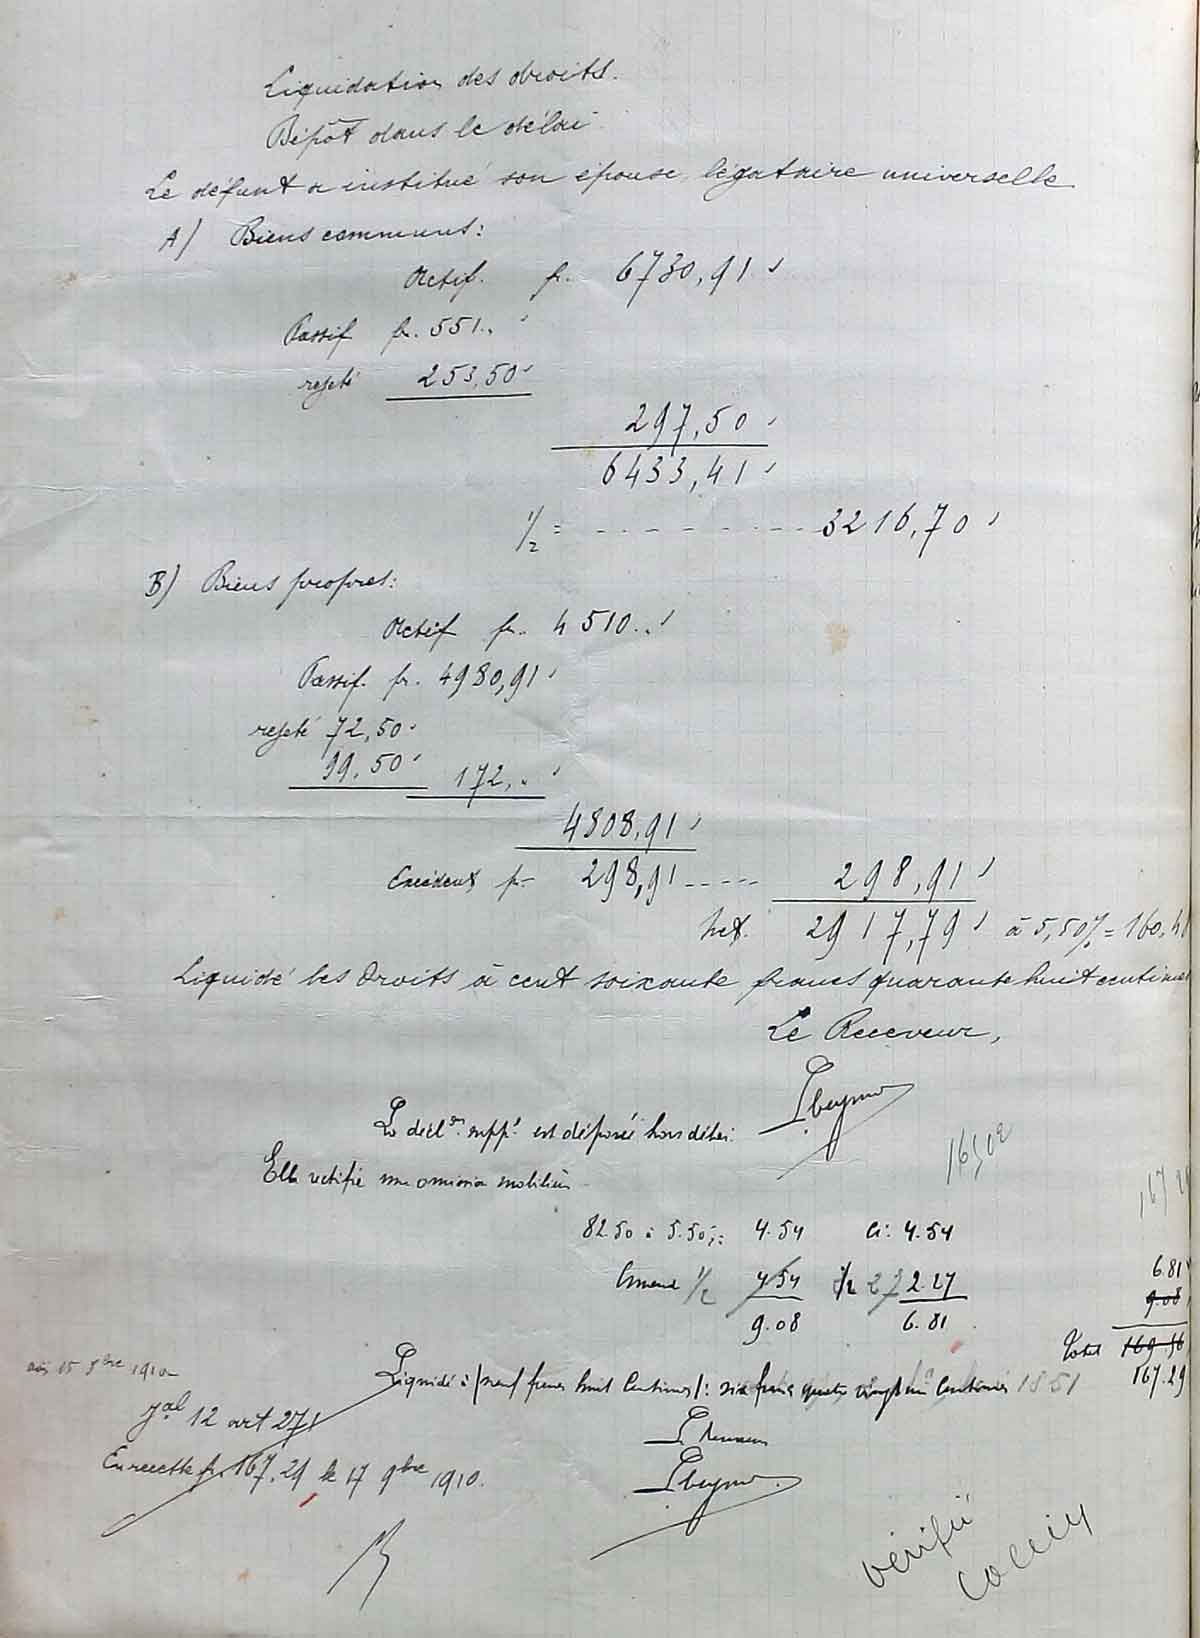 Liquidation des droits.
Dépôt dans le délai
Le défunt a institué son épouse, légataire universelle
A) Biens communs:
Actif. fr. 6730,91
Passif fr. 551..
rejeté 253,50
297,50
6433,41
1/2 = - - - - - - - - - 3216,70
B) Biens propres:
Actif fr. 4510..
Passif. fr. 4980,91
rejeté 72,50
99,50 172,..
4808,91
Excédent fr. 298,91 ----- 298,91
net. 2917,79 à 5,50% = 160,48
Liquidé les Droits à cent soixante francs quarante huit centimes
Le Receveur,
La décl.on supp.re est déposée hors délai.
Elle rectifie une omission mobilière
82.50 à 5.50%: 4.54 Ci: 4.54
Amende 1/2 4.54 1/2 2.27
9.08 6.81
6.81
9.08
Total 169.56
167.29
Liquidé à (neuf francs huit Centimes): six francs quatre vingt un Centimes
15 1910
Jal 12 art 271
En recette fr. 167,29 le 17 9bre 1910.
Le Receveur
Vérifié